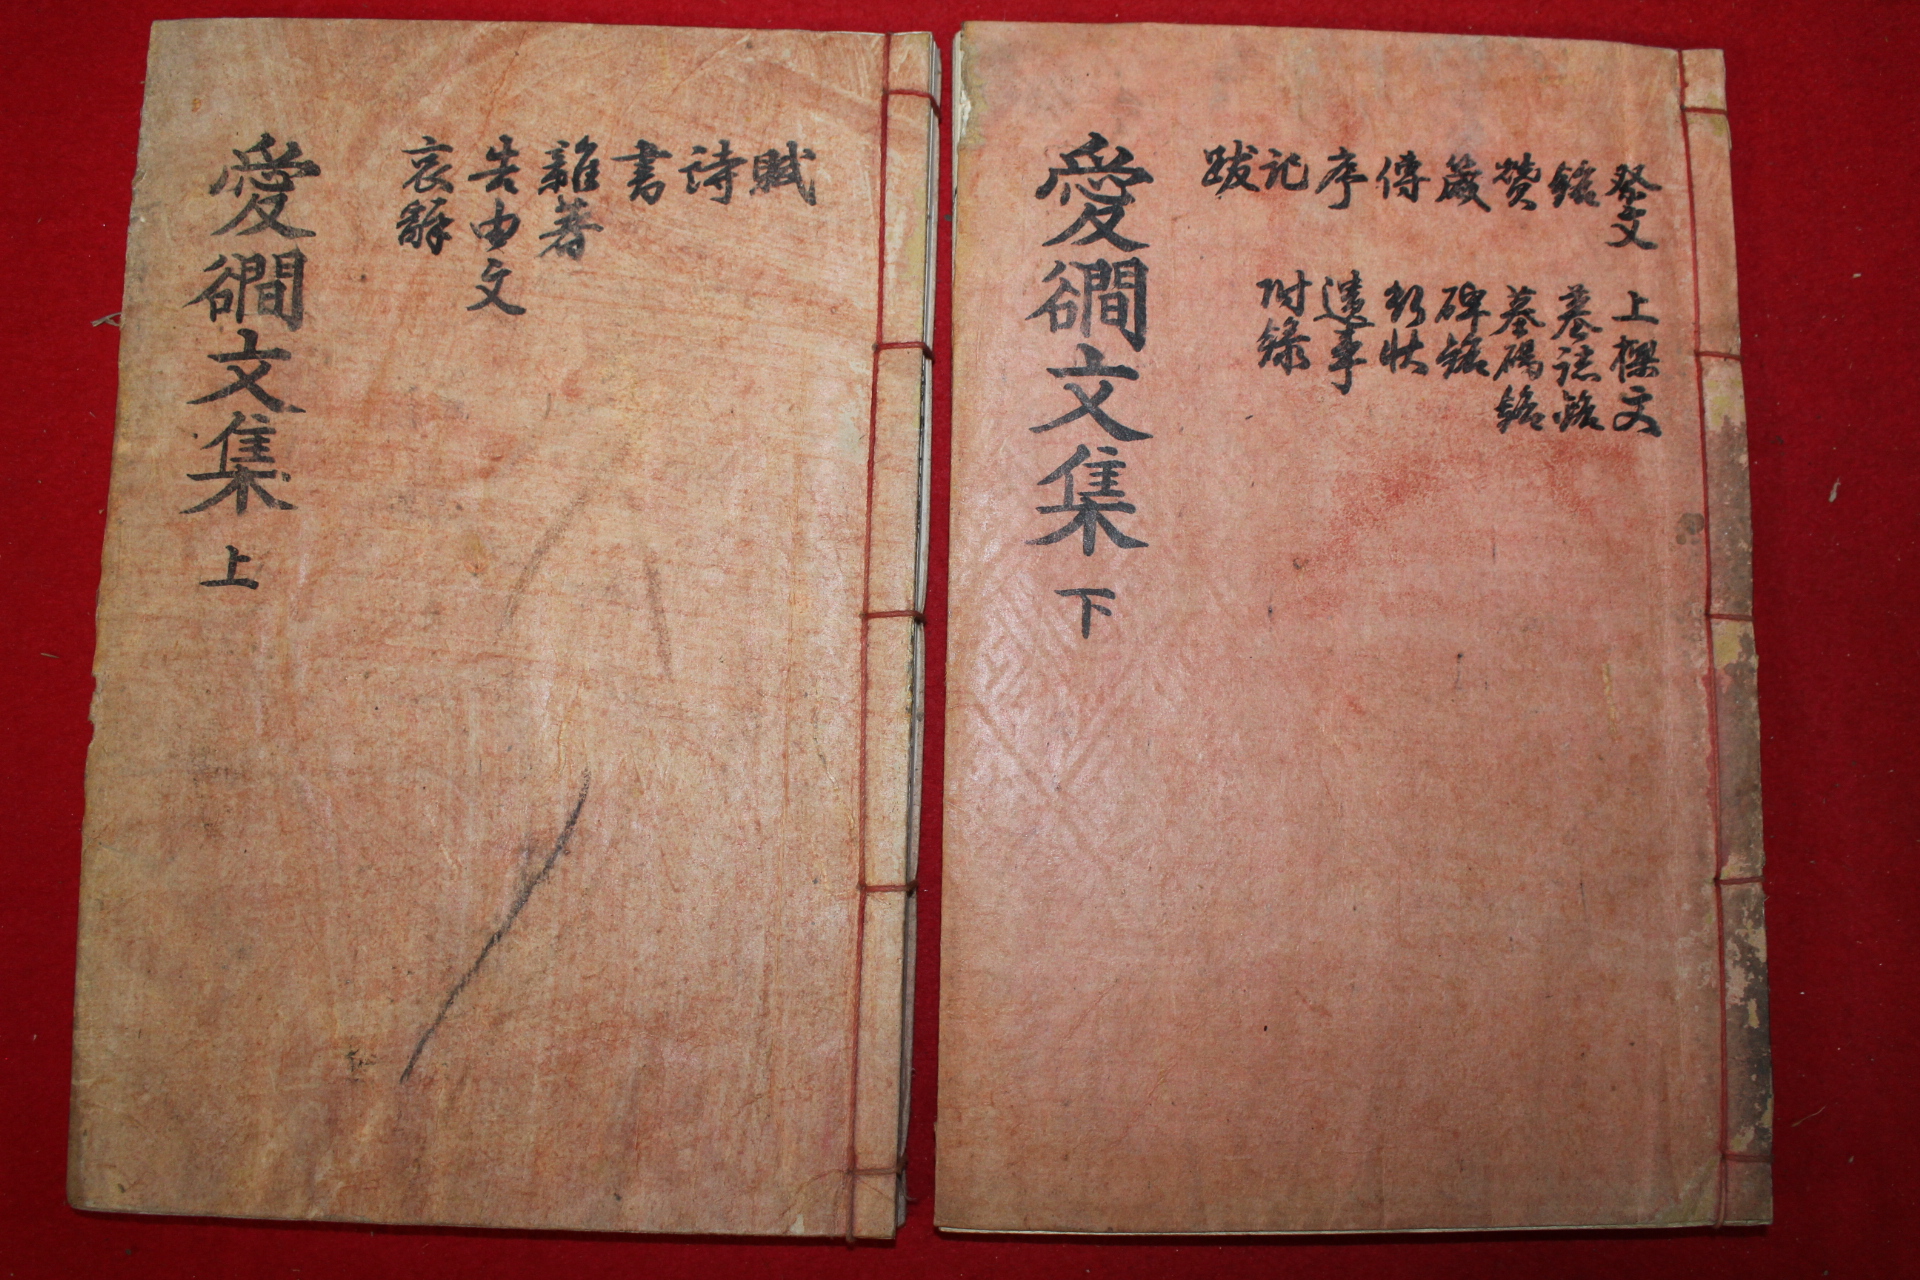 賦
詩
書
雜著
告由文
哀辭
愛文集 上
祭文
銘
贊
箴
傳
序
記
跋
上樑文
墓誌銘
墓碣銘
碑銘
行狀
遺事
附錄
愛文集 下